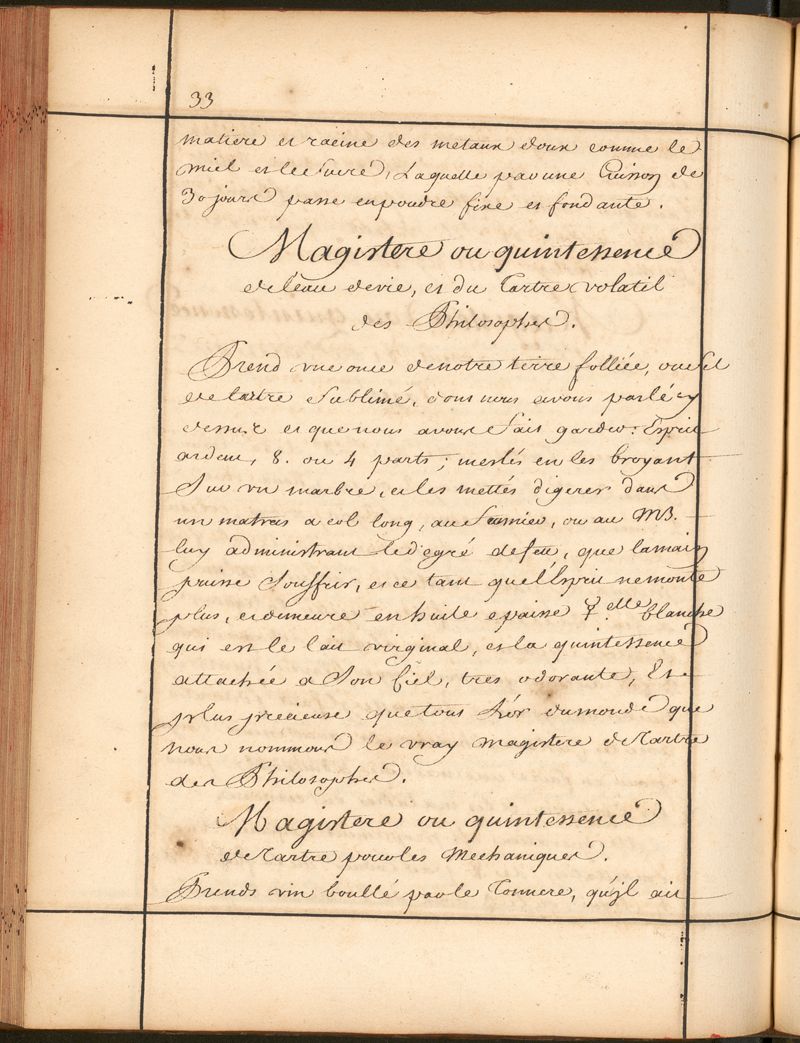 33
matiere et racine des metaux doux comme le
miel et le sucre, Laquelle par une Cuison de
30 jours passe en poudre fixe et fondante.
Magistere ou quintessence
de l'eau de vie, et du Tartre volatil
des Philosophes.
Prend une once de notre terre folliée, ou sel
de tartre sublimé, dont nous avons parlé cy
dessus et que nous avons fait garder: Esprit
ardent, 8. ou 4 parts; meslés en les broyant
sur un marbre, et les mettés digerer dans
un matras a col long, au fumier, ou au MB.
luy administrant le degré de feu, que la main
puisse souffrir, et ce tant que l'Esprit ne monte
plus, et demeure en huile epaisse blanche
qui est le lait virginal, et la quintessence
attachée a son ciel, tres odorante, Et
plus precieuse que tous l'or du monde que
nous nommons le vray magistere de Tartre
des Philosophes.
Magistere ou quintessence
de Tartre pour les Mechaniques.
Prends vin boullé par le Tonnere, qu'jl ait